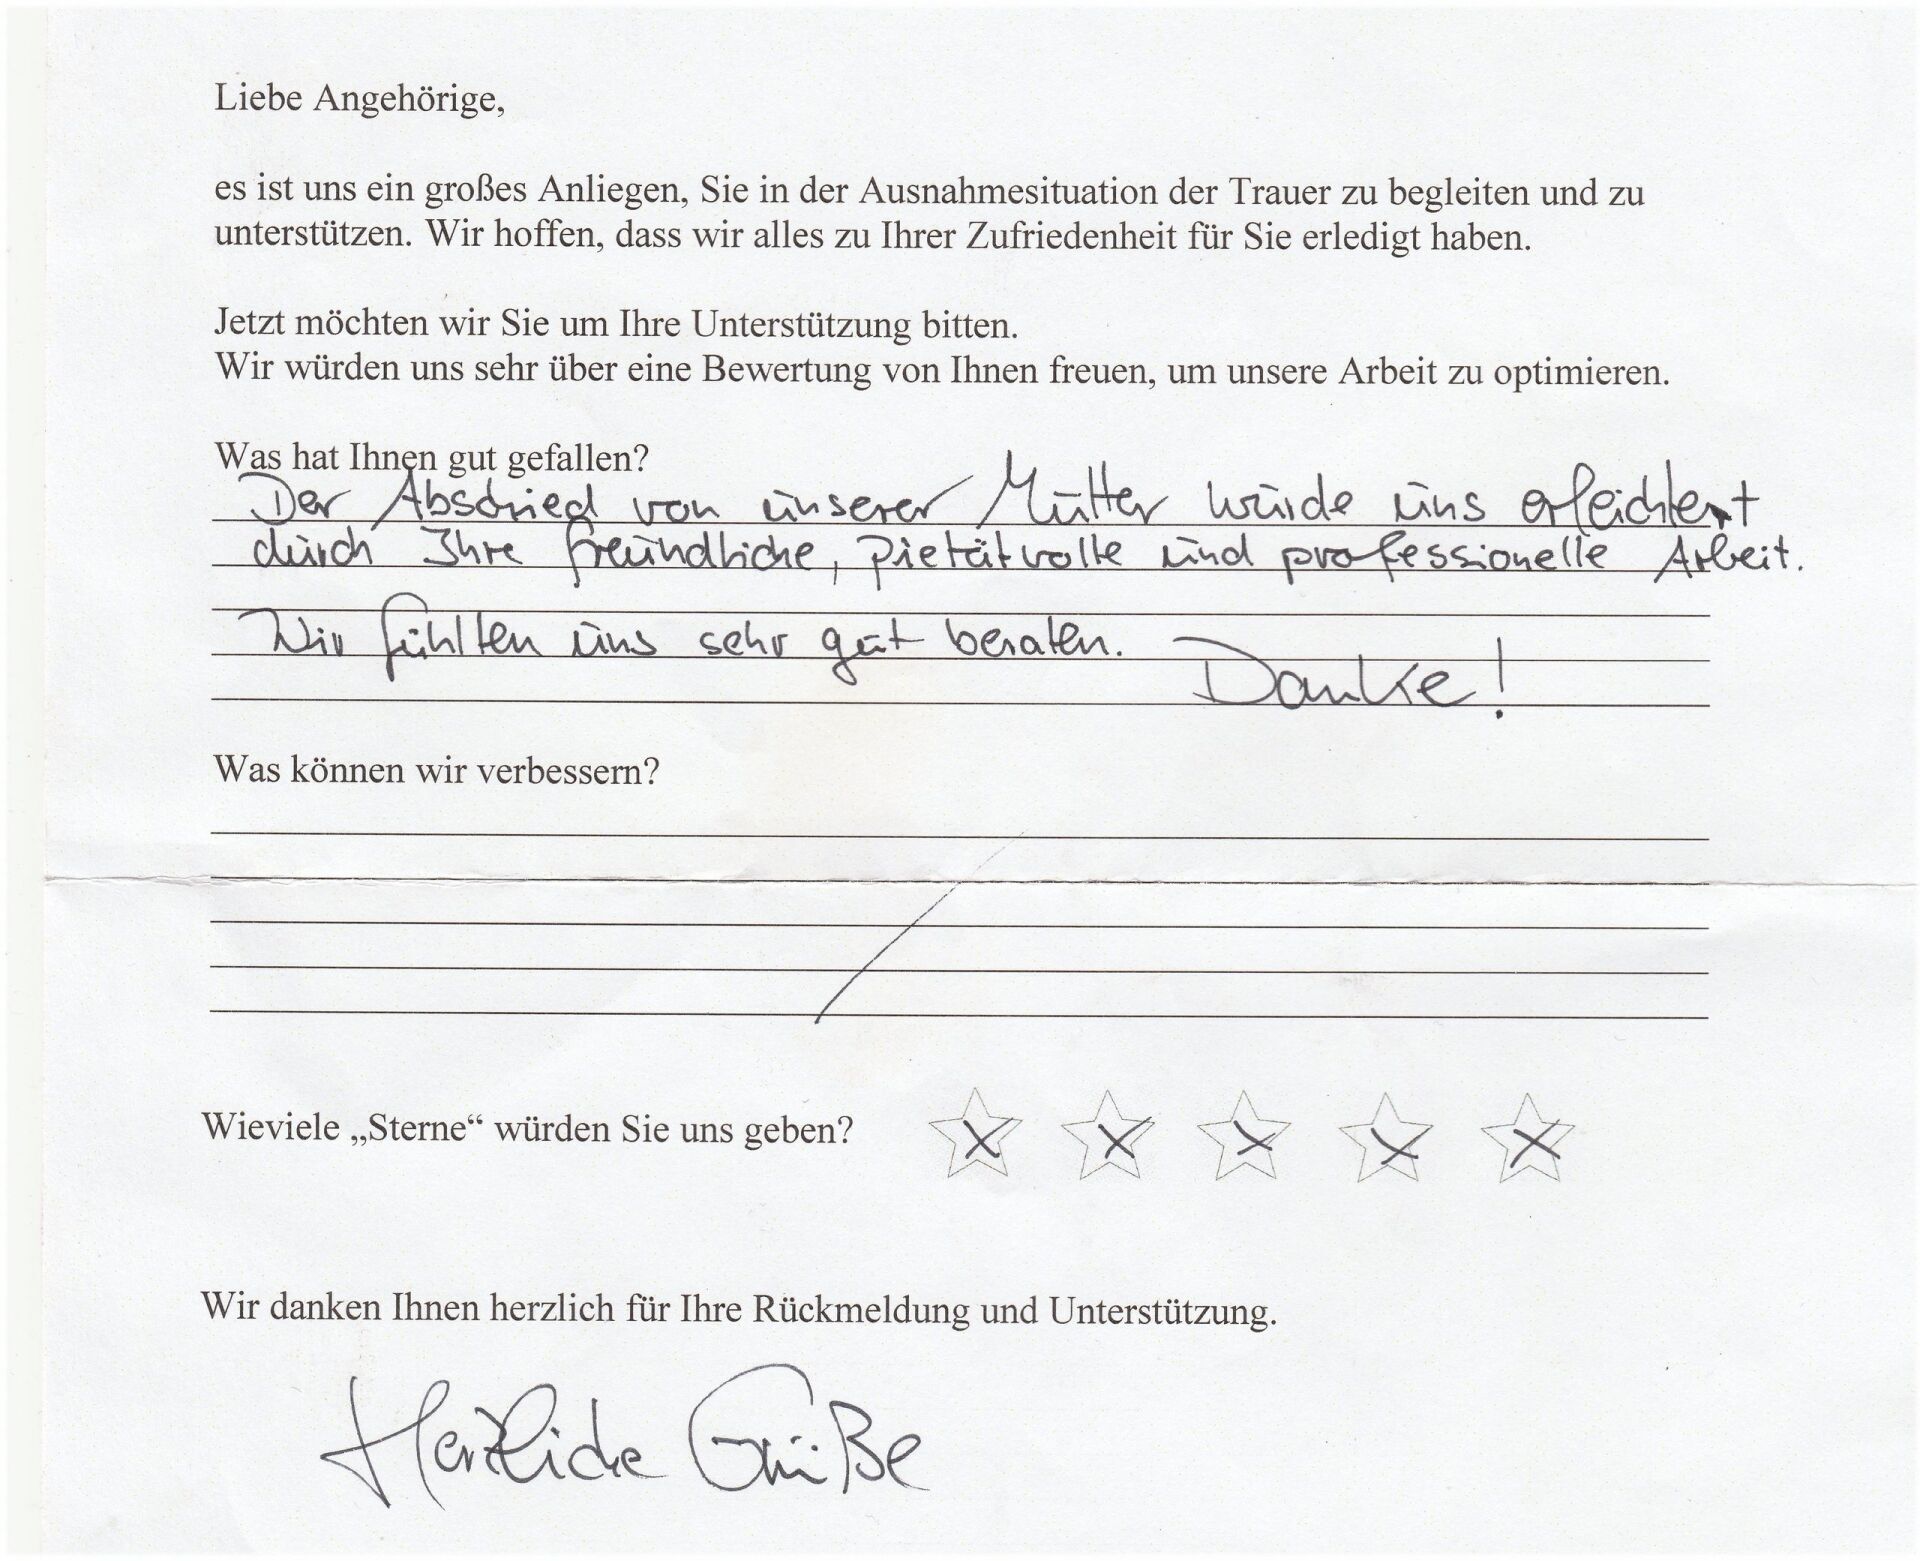 Liebe Angehörige,
es ist uns ein großes Anliegen, Sie in der Ausnahmesituation der Trauer zu begleiten und zu
unterstützen. Wir hoffen, dass wir alles zu Ihrer Zufriedenheit für Sie erledigt haben.
Jetzt möchten wir Sie um Ihre Unterstützung bitten.
Wir würden uns sehr über eine Bewertung von Ihnen freuen, um unsere Arbeit zu optimieren.
Was hat Ihnen gut gefallen?
Der Abschied von unserer Mutter wurde uns erleichtert
durch Ihre freundliche, pietätvolle und professionelle Arbeit.
Wir fühlten uns sehr gut beraten. Danke!
Was können wir verbessern?
Wieviele „Sterne“ würden Sie uns geben? X X X X X
Wir danken Ihnen herzlich für Ihre Rückmeldung und Unterstützung.
Herzliche Grüße